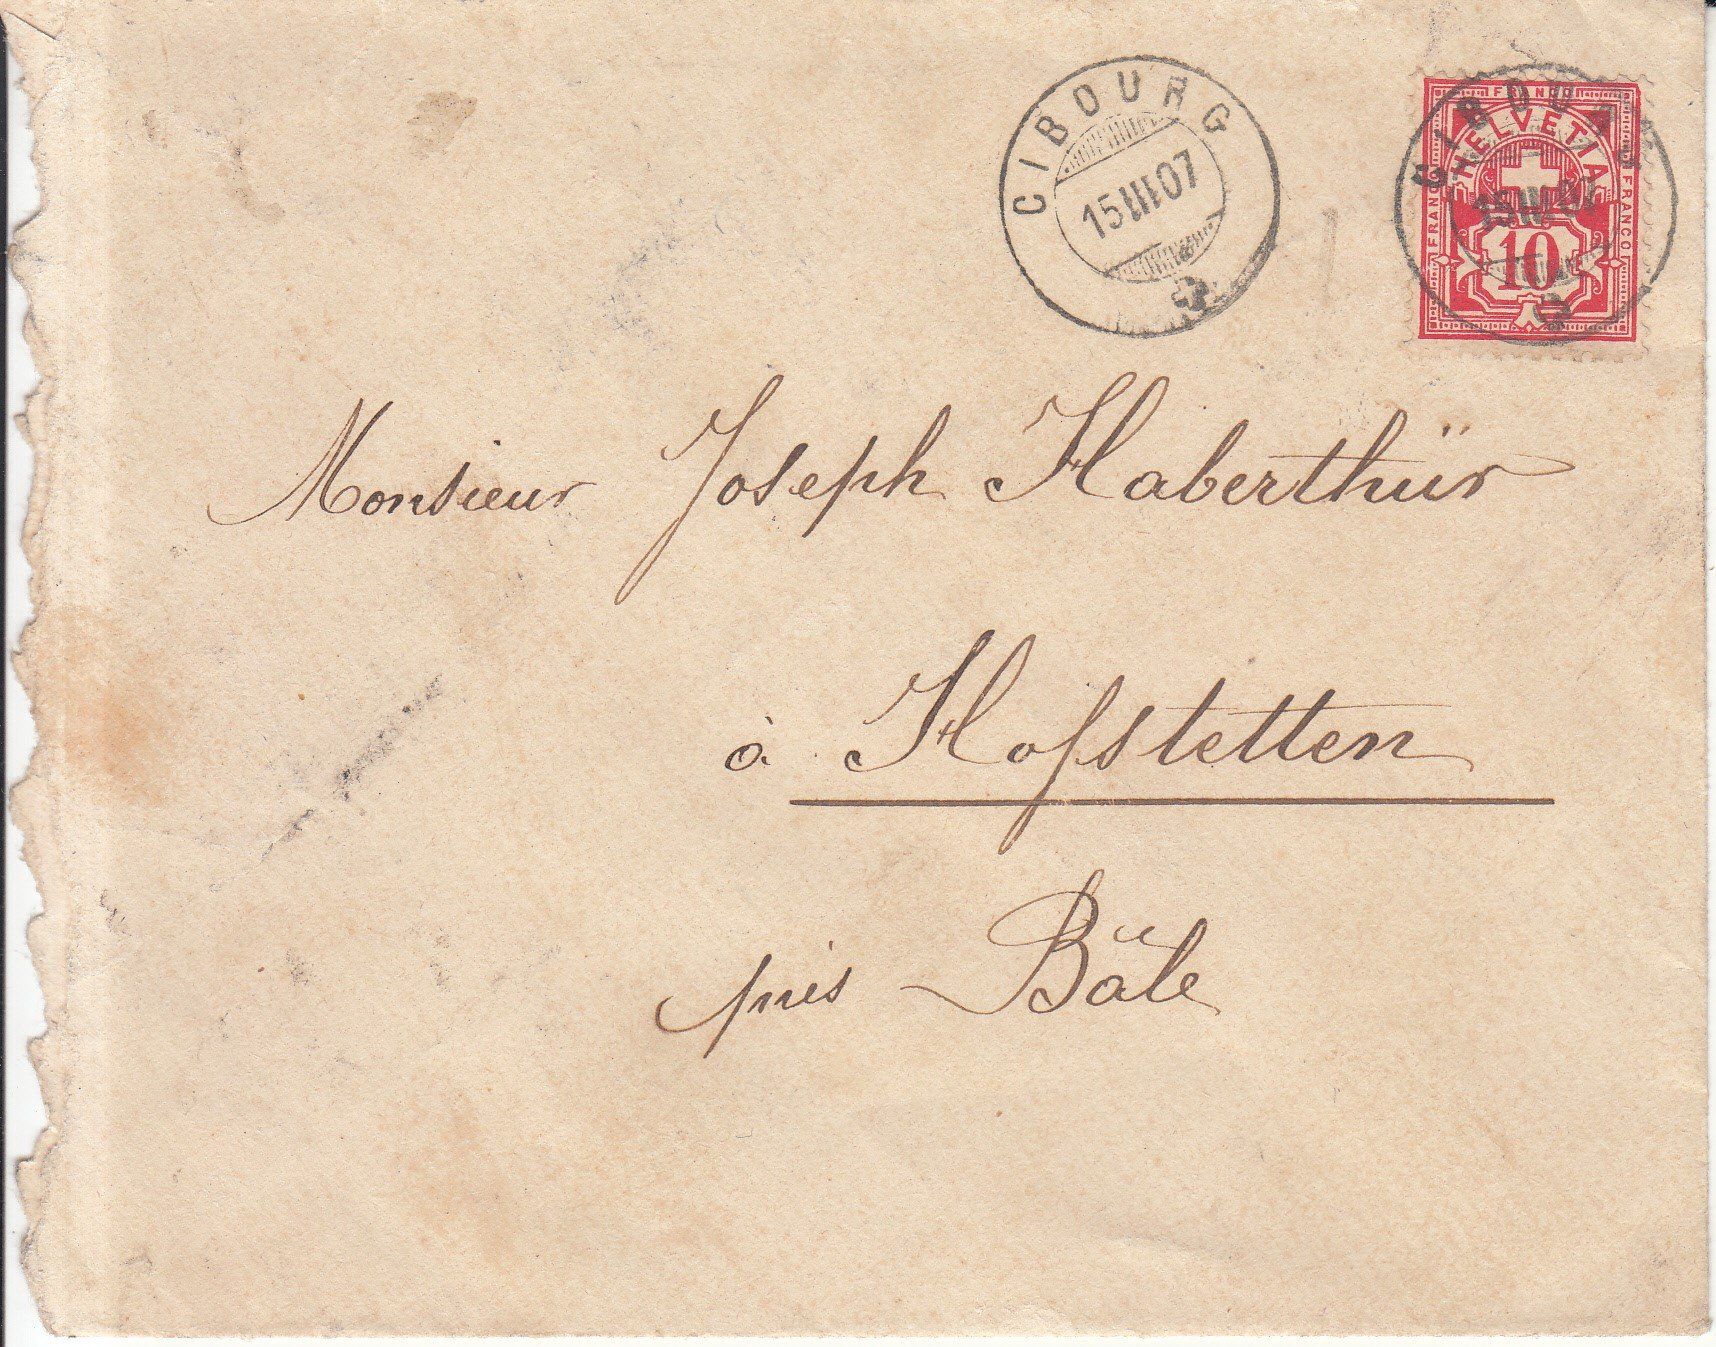 CIBOURG
15 III 07
CIBOURG
15 III 07
FRANCO
HELVETIA
FRANCO
FRANCO
10
Monsieur Joseph Haberthür
à Hofstetten
près Bâle